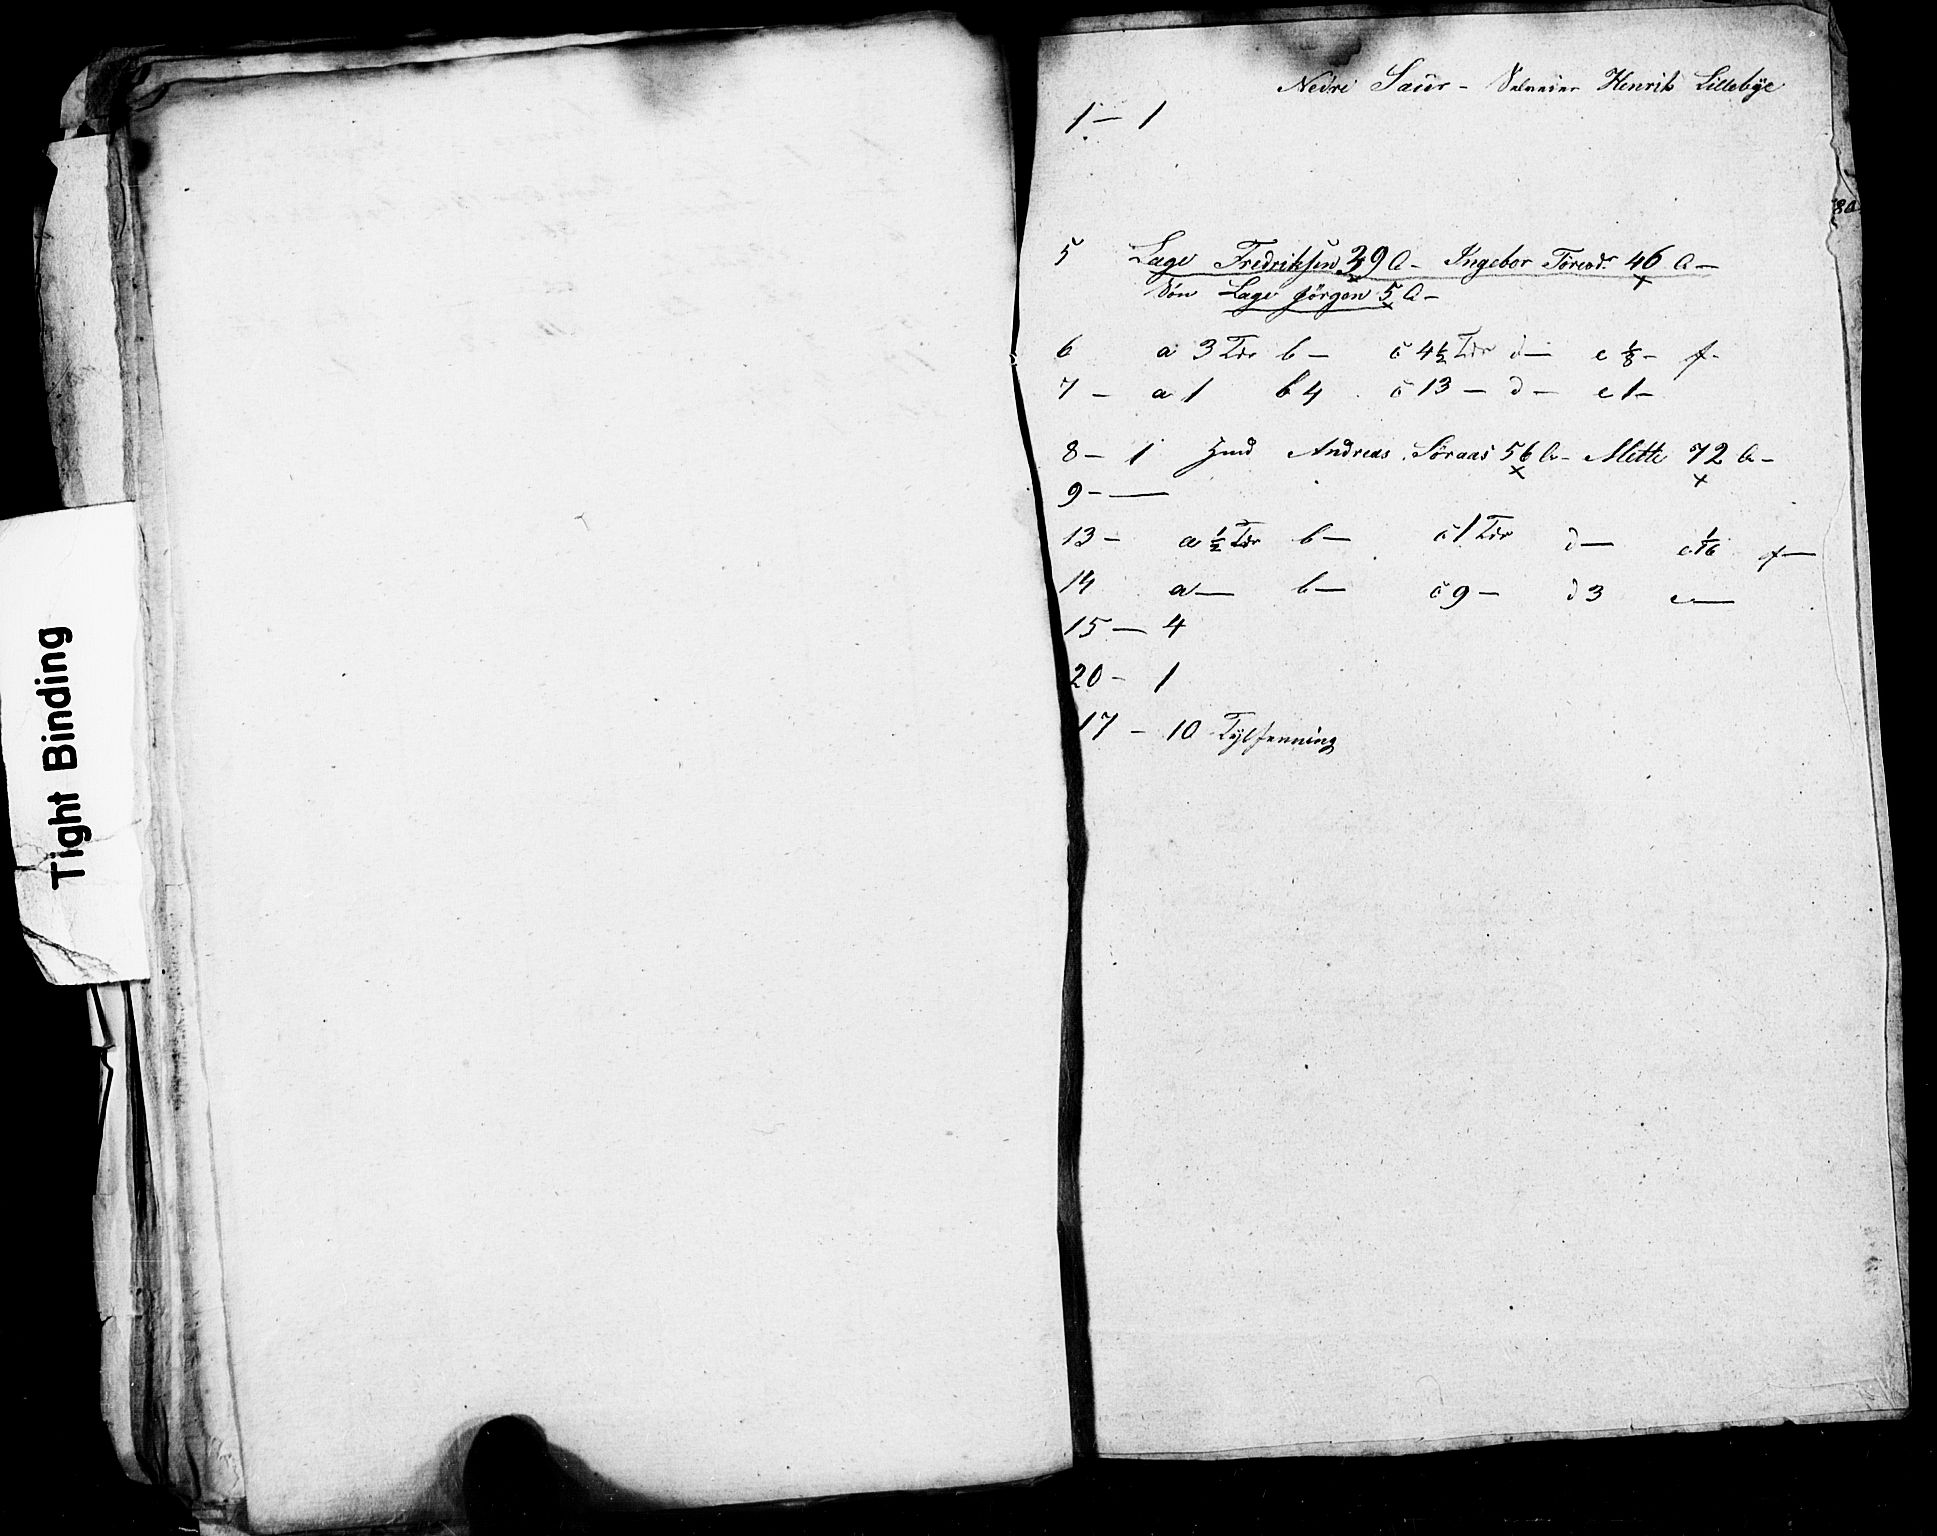 Tight Binding
Nedre Saur - Selveier Henrik Lillebye
1 — 1
80
5 Lage Fredriksen 39 A - Ingebor Toresdr 46 A —
Søn Lage Jörgen 5 A -
6 a 3 Tdr b — c 4½ Tdr d — e ⅛ - f -
7 - a 1 b 4 c 13 — d — e 1 -
8 - 1 Huusmd Andreas Söraas 56 A - Mette 72 A -
9 - —
13 - a ½ Tdr b — c 1 Tdr d — e 1/16 f —
14 a — b — c 9 — d 3 e —
15 — 4
20 - 1
17 - 10